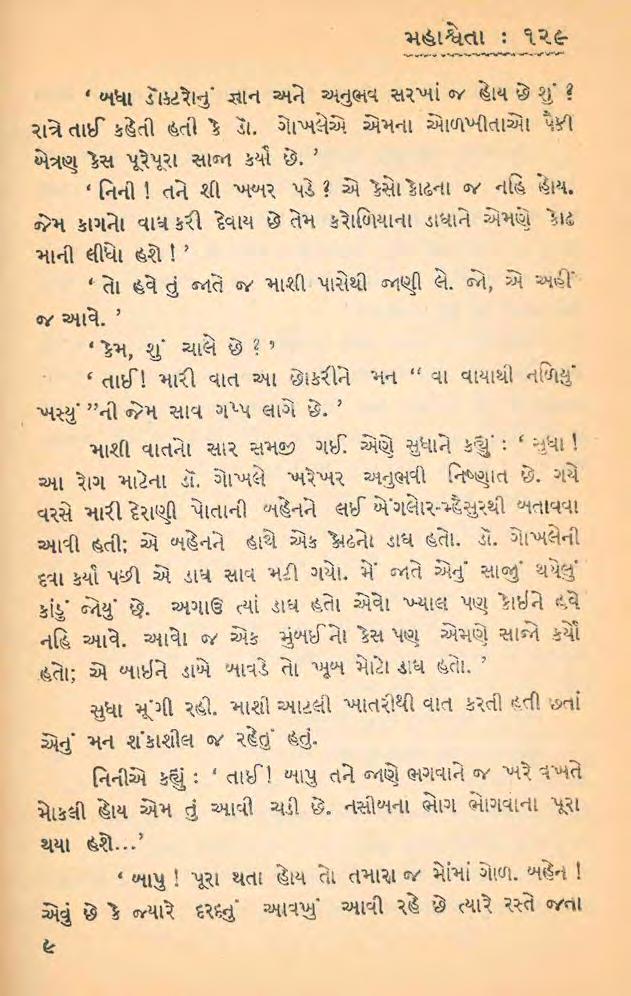 મહાશ્વેતા : ૧૨૯
‘ બધા ડૉકટરોનું જ્ઞાન અને અનુભવ સરખાં જ હોય છે શું ?
રાત્રે તાઈ કહેતી હતી કે ડૉ. ગોખલેએ એમના ઓળખીતાઓ પૈકી
બેત્રણ કેસ પૂરેપૂરા સાજા કર્યા છે. ’
‘ નિની ! તને શી ખબર પડે ? એ કેસો કોઢના જ નહિ હોય.
જેમ કાગનો વાઘ કરી દેવાય છે તેમ કરોળિયાના ડાઘાને એમણે કોઢ
માની લીધો હશે ! ’
‘ તો હવે તું જાતે જ માશી પાસેથી જાણી લે. જો, એ અહીં
જ આવે. ’
‘ કેમ, શું ચાલે છે ? ’
‘ તાઈ! મારી વાત આ છોકરીને મન “ વા વાયાથી નળિયું
ખસ્યું ”ની જેમ સાવ ગપ્પ લાગે છે. ’
માશી વાતનો સાર સમજી ગઈ. એણે સુધાને કહ્યું : ‘ સુધા !
આ રોગ માટેના ડૉ. ગોખલે ખરેખર અનુભવી નિષ્ણાત છે. ગયે
વરસે મારી દેરાણી પોતાની બહેનને લઈ બેંગલોર-મ્હૈસુરથી બતાવવા
આવી હતી; એ બહેનને હાથે એક કોઢનો ડાઘ હતો. ડૉ. ગોખલેની
દવા કર્યા પછી એ ડાઘ સાવ મટી ગયો. મેં જાતે એનું સાજું થયેલું
કાંડું જોયું છે. અગાઉ ત્યાં ડાઘ હતો એવો ખ્યાલ પણ કોઈને હવે
નહિ આવે. આવો જ એક મુંબઈનો કેસ પણ એમણે સાજો કર્યો
હતો; એ બાઈને ડાબે બાવડે તો ખૂબ મોટો ડાઘ હતો. ’
સુધા મૂંગી રહી. માશી આટલી ખાતરીથી વાત કરતી હતી છતાં
એનું મન શંકાશીલ જ રહેતું હતું.
નિનીએ કહ્યું : ‘ તાઈ! બાપુ તને જાણે ભગવાને જ ખરે વખતે
મોકલી હોય એમ તું આવી ચડી છે. નસીબના ભોગ ભોગવાના પૂરા
થયા હશે...’
‘ બાપુ ! પૂરા થતા હોય તો તમારા જ મોંમાં ગોળ. બહેન !
એવું છે કે જ્યારે દરદનું આવખું આવી રહે છે ત્યારે રસ્તે જતા
૯